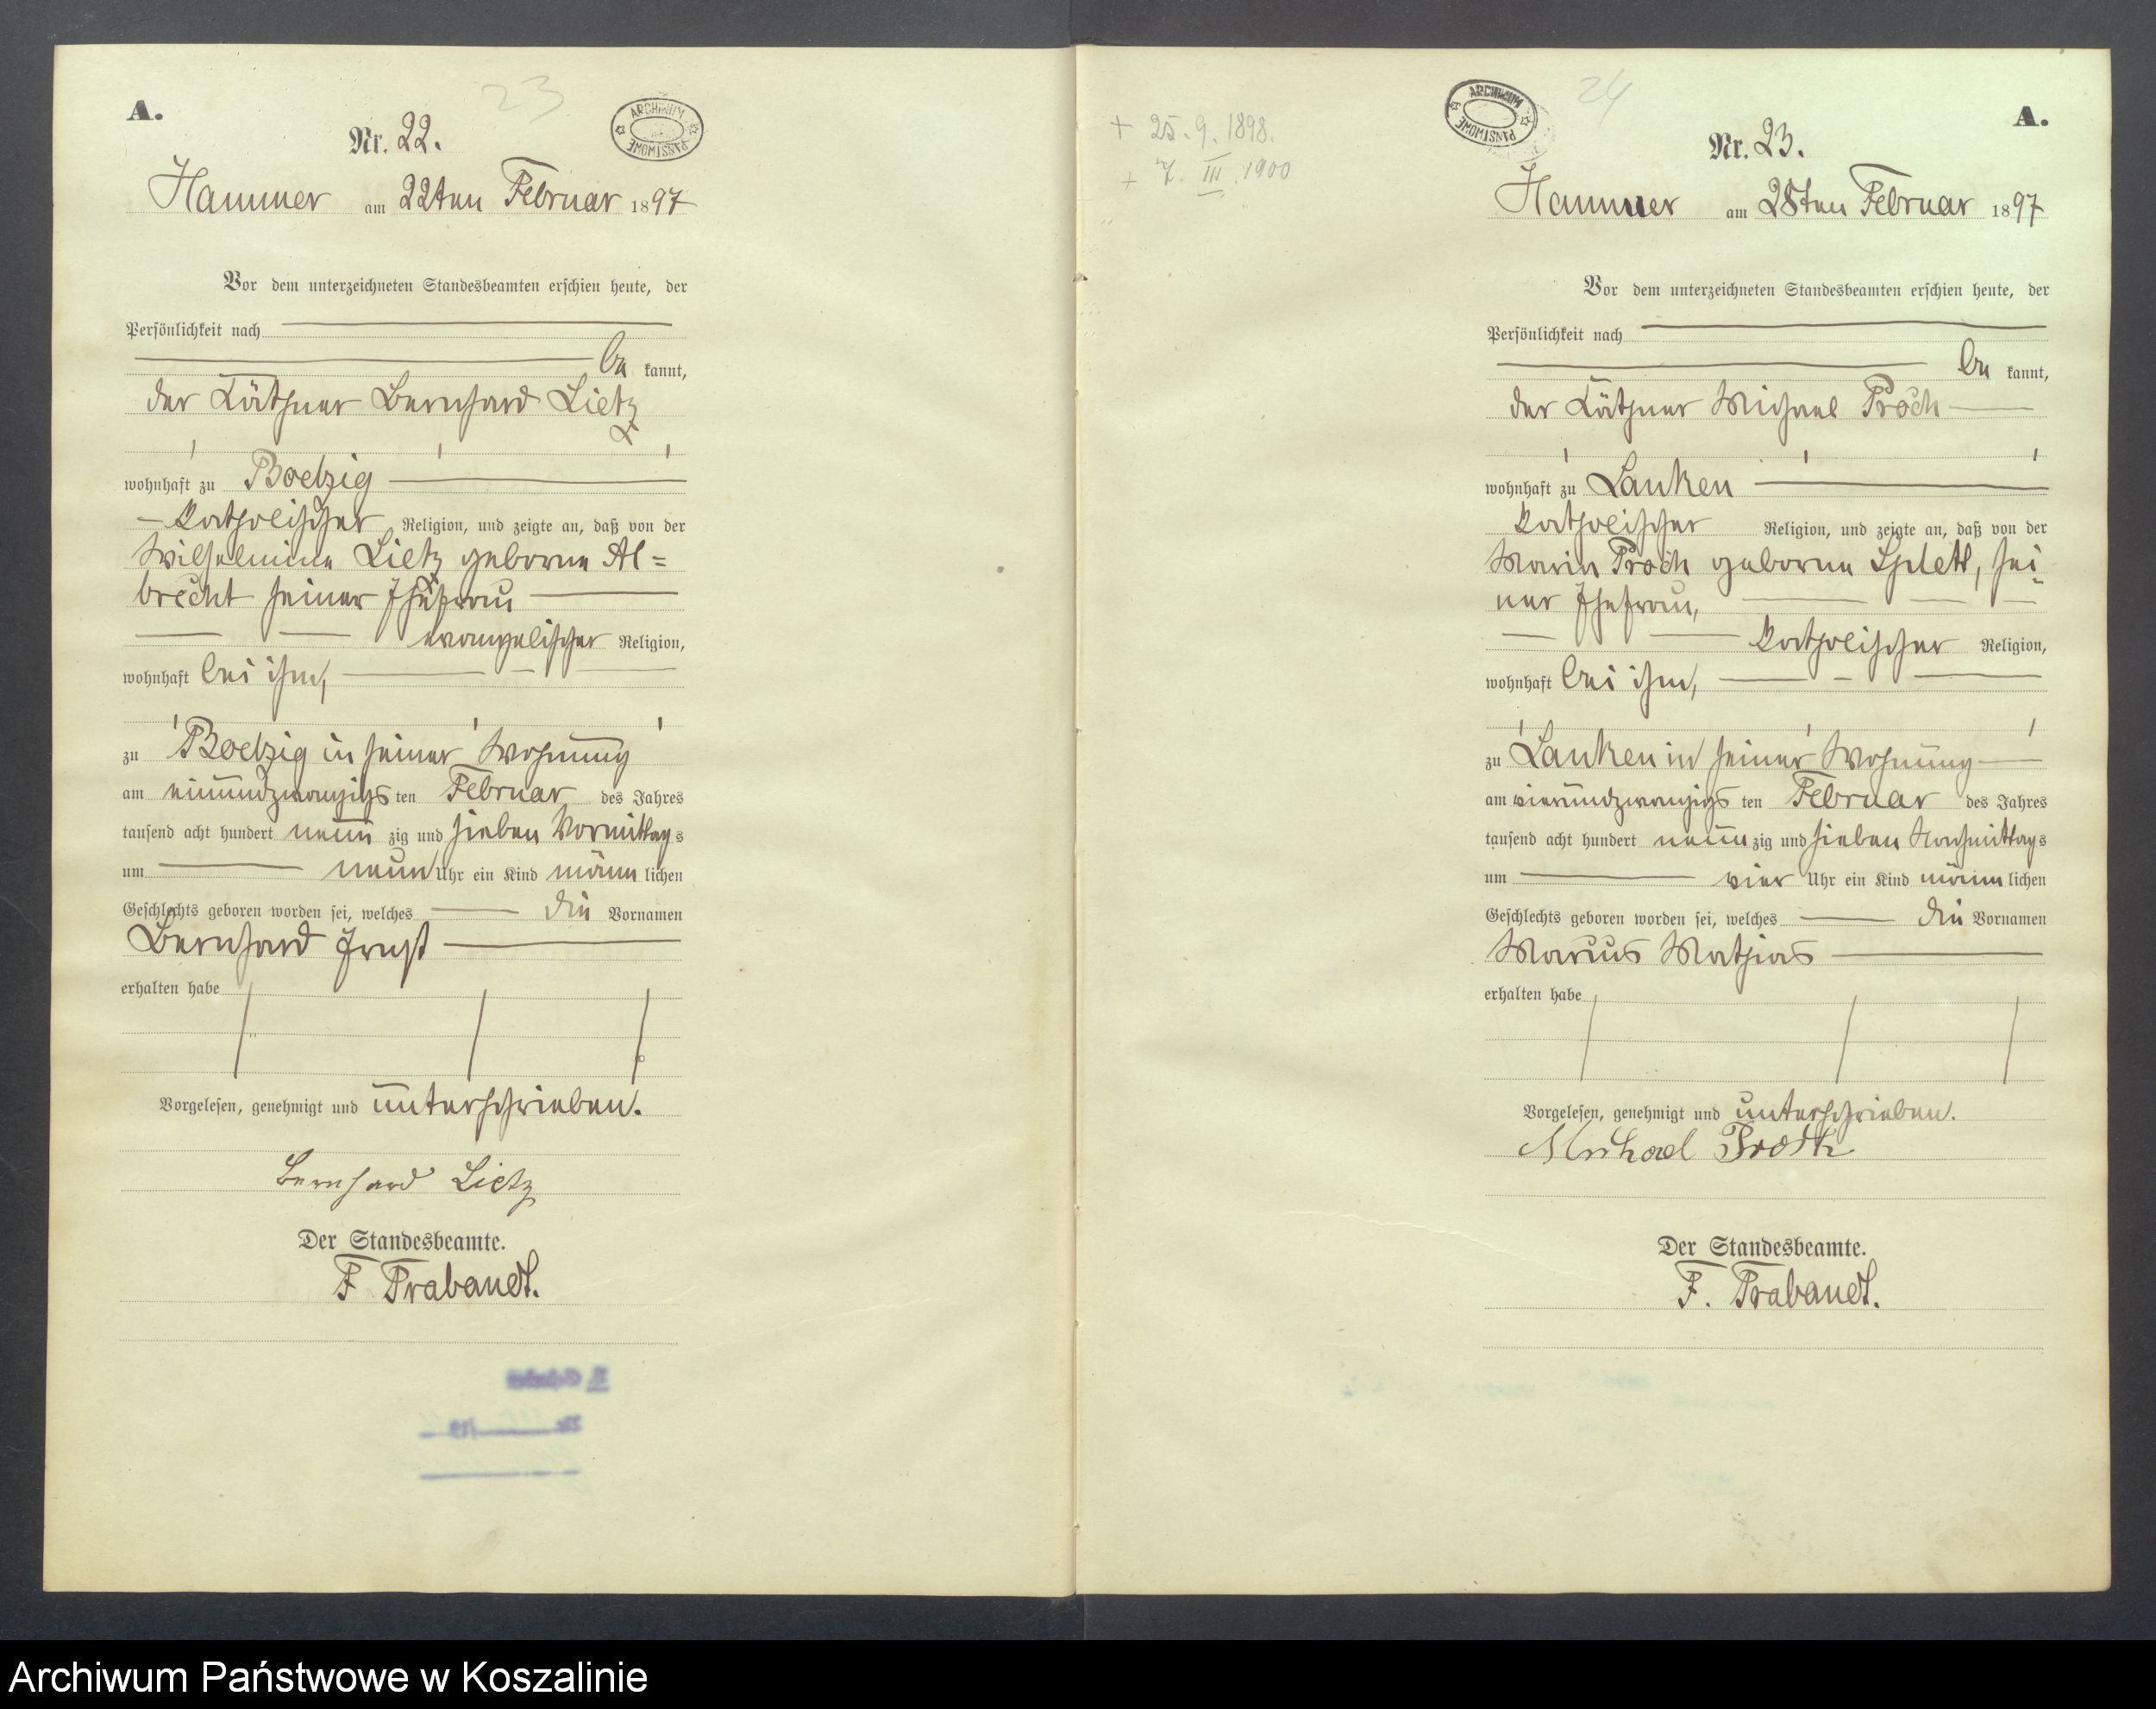 23
A.
ARCHIWUM PAŃSTWOWE
Nr. 22.
Hammer am 22ten Februar 1897
Vor dem unterzeichneten Standesbeamten erschien heute, der
Persönlichkeit nach
be kannt,
der Käthner Bernhard Lietz
wohnhaft zu Boetzig
katholischer Religion, und zeigte an, daß von der
Wilhelmine Lietz geborne Al=
brecht seiner Ehefrau
evangelischer Religion,
wohnhaft bei ihm,
zu Boetzig in seiner Wohnung
am einundzwanzigs ten Februar des Jahres
tausend acht hundert neun zig und sieben Vormittag s
um neun Uhr ein Kind männ lichen
Geschlechts geboren worden sei, welches die Vornamen
Bernhard Ernst
erhalten habe
Vorgelesen, genehmigt und unterschrieben.
Bernhard Lietz
Der Standesbeamte.
F. Trabandt.
24
A.
ARCHIWUM PAŃSTWOWE
+ 25. 9. 1898.
+ 7. III. 1900
Nr. 23.
Hammer am 28ten Februar 1897
Vor dem unterzeichneten Standesbeamten erschien heute, der
Persönlichkeit nach
be kannt,
der Käthner Michael Proch
wohnhaft zu Lanken
katholischer Religion, und zeigte an, daß von der
Marie Proch geborne Splett, sei-
ner Ehefrau,
katholischer Religion,
wohnhaft bei ihm,
zu Lanken in seiner Wohnung
am vierundzwanzigs ten Februar des Jahres
tausend acht hundert neun zig und sieben Nachmittag s
um vier Uhr ein Kind männ lichen
Geschlechts geboren worden sei, welches die Vornamen
Marius Mathias
erhalten habe
Vorgelesen, genehmigt und unterschrieben.
Michael
Der Standesbeamte.
F. Trabandt.
Archiwum Państwowe w Koszalinie